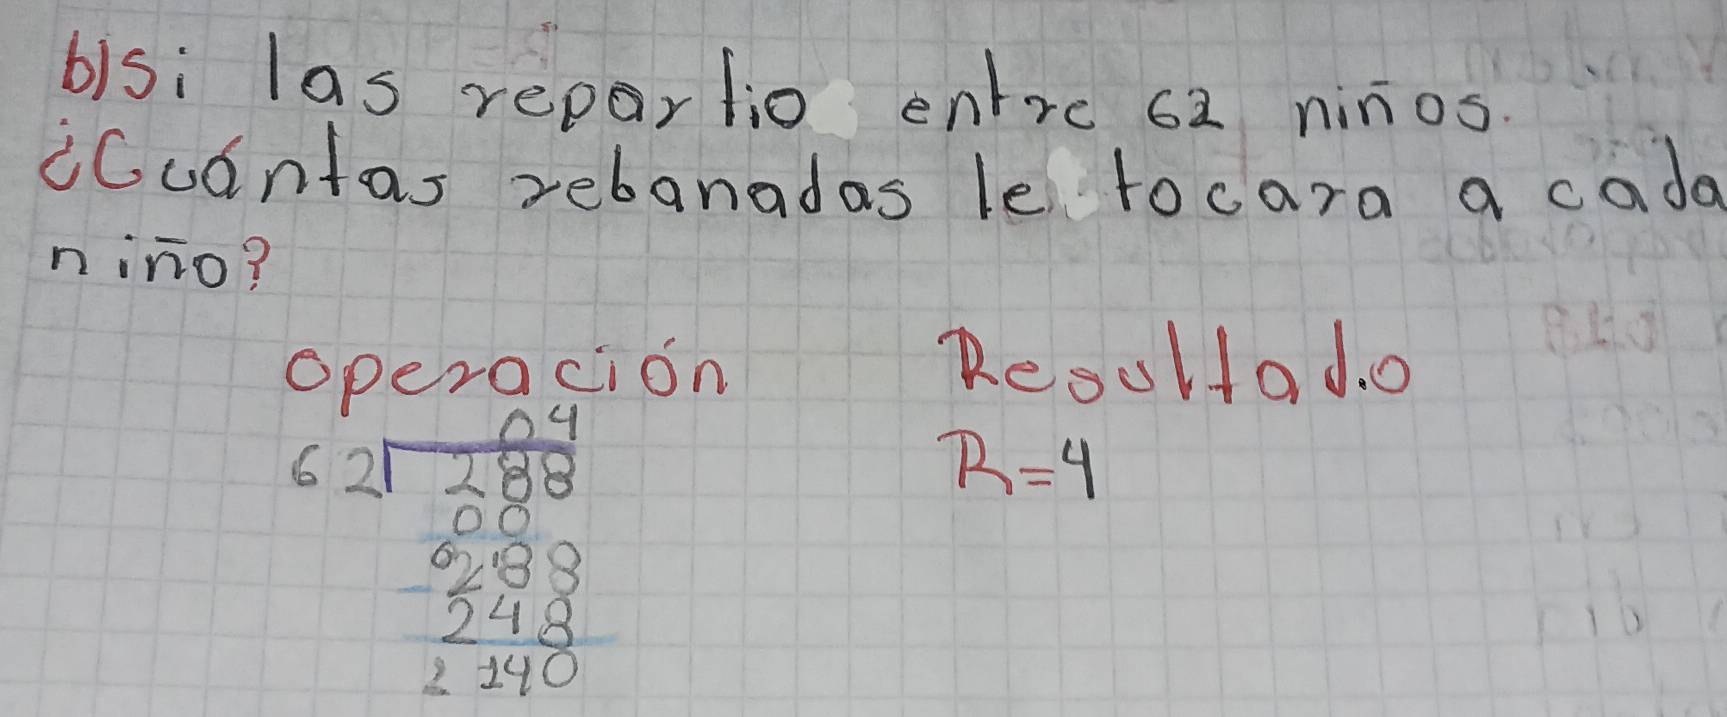 b) Si las repartio entre 62 niños.
¿Cuántas rebanadas le tocara a cada
niño?
Operación Resultado
04
62 288 R=4
00
288
- 248